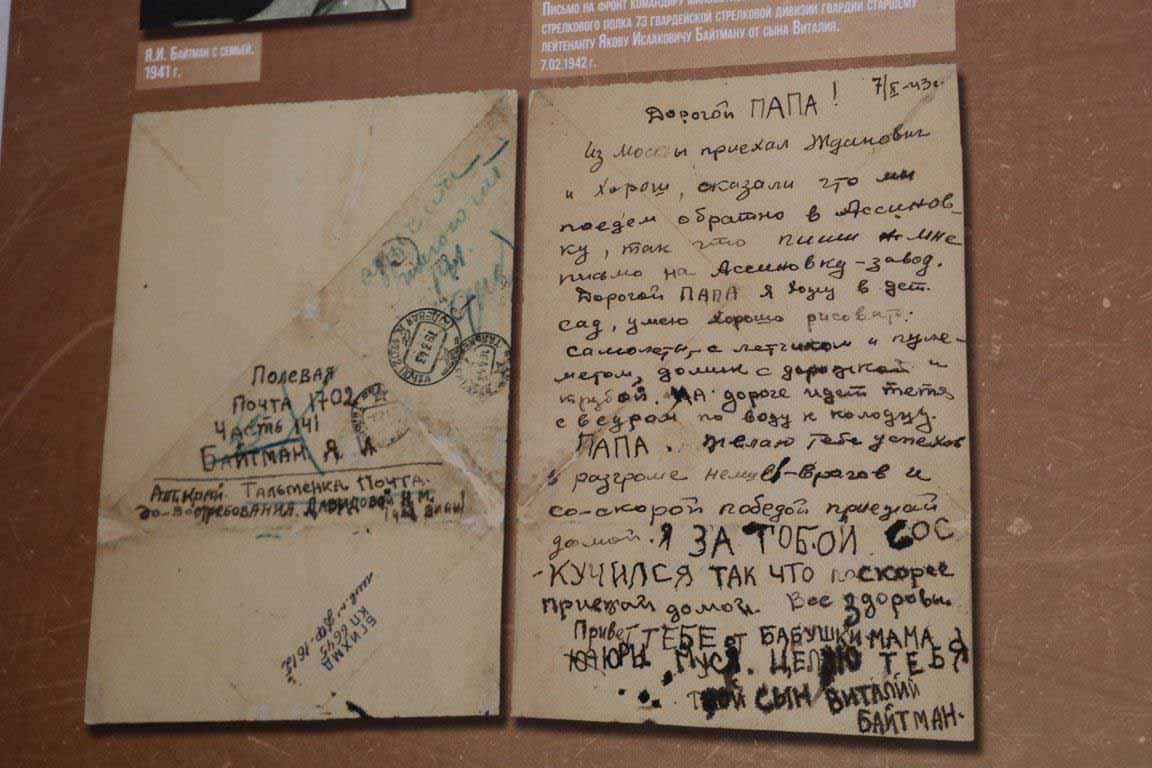 Я.И. Байтман с семьей.
1941 г.
Письмо на фронт командиру
стрелкового полка 73 гвардейской стрелковой дивизии гвардии старшему
лейтенанту Якову Исааковичу Байтману от сына Виталия.
7.02.1942 г.
Полевая
Почта 1702
Часть 141
Байтман Я И
Алт.Край. Тальменка. Почта.
до-востребования. Давидовой
БГИХМД
КП 6645
7/II-43г
Дорогой ПАПА!
Из Москвы приехал Жданович
и Хорош, сказали что мы
поедем обратно в Ассинов-
ку, так что пиши мне
письмо на Ассиновку-завод.
Дорогой ПАПА я хожу в дет.
сад, умею хорошо рисовать:
самолеты-с летчиком и пуле-
метом, домик с дорожкой и
трубой. НА дороге идет тетя
с ведром по воду к колодцу.
ПАПА. Желаю тебе успехов
в разгроме немцев-врагов и
со-скорой победой приезжай
домой. Я ЗА ТОБОЙ СОС
-КУЧИЛСЯ ТАК ЧТО ПОСКОРЕЕ
приезжай домой. Все здоровы.
Привет ТЕБЕ от БАБУШКИ МАМА
ЮРЫ МУСЯ. ЦЕЛУЮ ТЕБЯ
ТВОЙ СЫН ВИТАЛИЙ
БАЙТМАН.